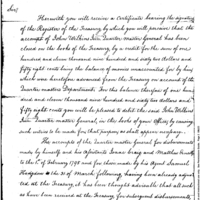 Sir,
Herewith you will receive a Certificate bearing the signature
of the Register of the Treasury by which you will perceive that the
account of John Wilkins Jun. Quarter master General has been
closed on the books of the Treasury, by a credit for the sum of one
hundred and eleven thousand nine hundred and sixty six dollars and
fifty eight cents being the balance of monies unaccounted for by him
which was heretofore advanced from the Treasury on account of the
Quarter masters Department. For the balance therefore of one hund
red and eleven thousand nine hundred and sixty six dollars and
fifty eight cents you will be pleased to debit the said John Wilkins
Jun. Quarter master General, on the books of your Office by causing
such entries to be made for that purpose as shall appear necessary.
The accounts of the Quarter master General for disbursements
made by himself and his Assistants Isaac Craig and Matthew Ernest
to the 1st of February 1798 and for those made by his Agent Samuel
Hodgdon to the 31 of March following, having been already adjust
ed at the Treasury, it has been thought advisable that all such
as have been rendered at the Treasury for subsequent disbursements,